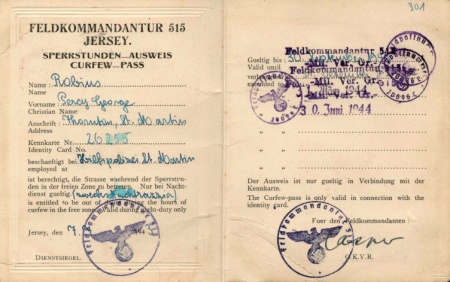 FELDKOMMANDANTUR 515
JERSEY.
SPERRSTUNDEN-AUSWEIS
CURFEW-PASS
Name :
Name
Vorname : Percy George
Christian Name
Anschrift : Thornton, St. Martin
Address
Kennkarte Nr.
Identity Card No.
beschaeftigt bei Hilfspolizei St. Martin
employed at
ist berechtigt, die Strasse waehrend der Sperrstun-
den in der freien Zone zu betreten. Nur bei Nacht-
dienst gueltig
is entitled to be out of during the hours of
curfew in the free zone. Valid during night-duty only
Jersey,
DIENSTSIEGEL.
Feldkommandantur 515
301
Gueltig bis
Valid until
Feldkommandantur 515
-Mil. Ver. Gr.-
Feldkommandantur 515
-Mil. Ver. Gr.-
1944
30. Juni 1944
" "
" "
" "
" "
Der Ausweis ist nur gueltig in Verbindung mit der
Kennkarte.
The Curfew-pass is only valid in connection with the
identity card.
Fuer den Feldkommandanten :
Casper
O.K.V.R.
Feldkommandantur 515